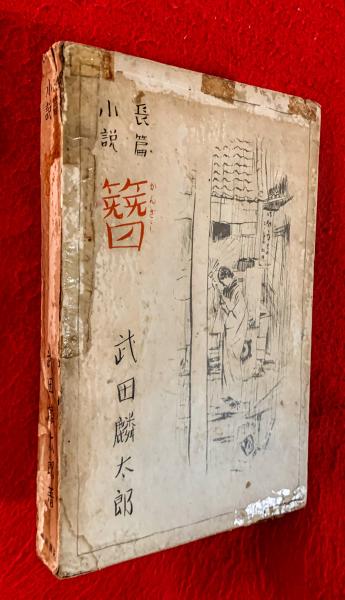 長篇
小説
簪
かんざし
武田麟太郎
小説
武田麟太郎著